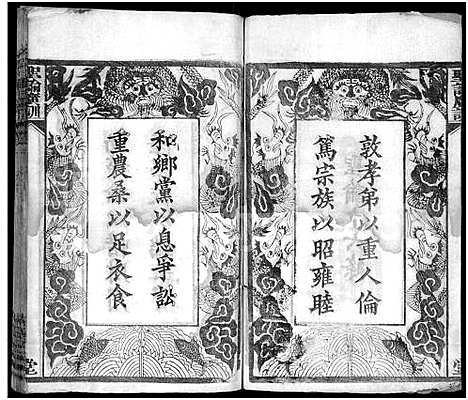 敦孝弟以重人倫
篤宗族以昭雍睦
和鄉黨以息爭訟
重農桑以足衣食
聖諭廣訓
堂